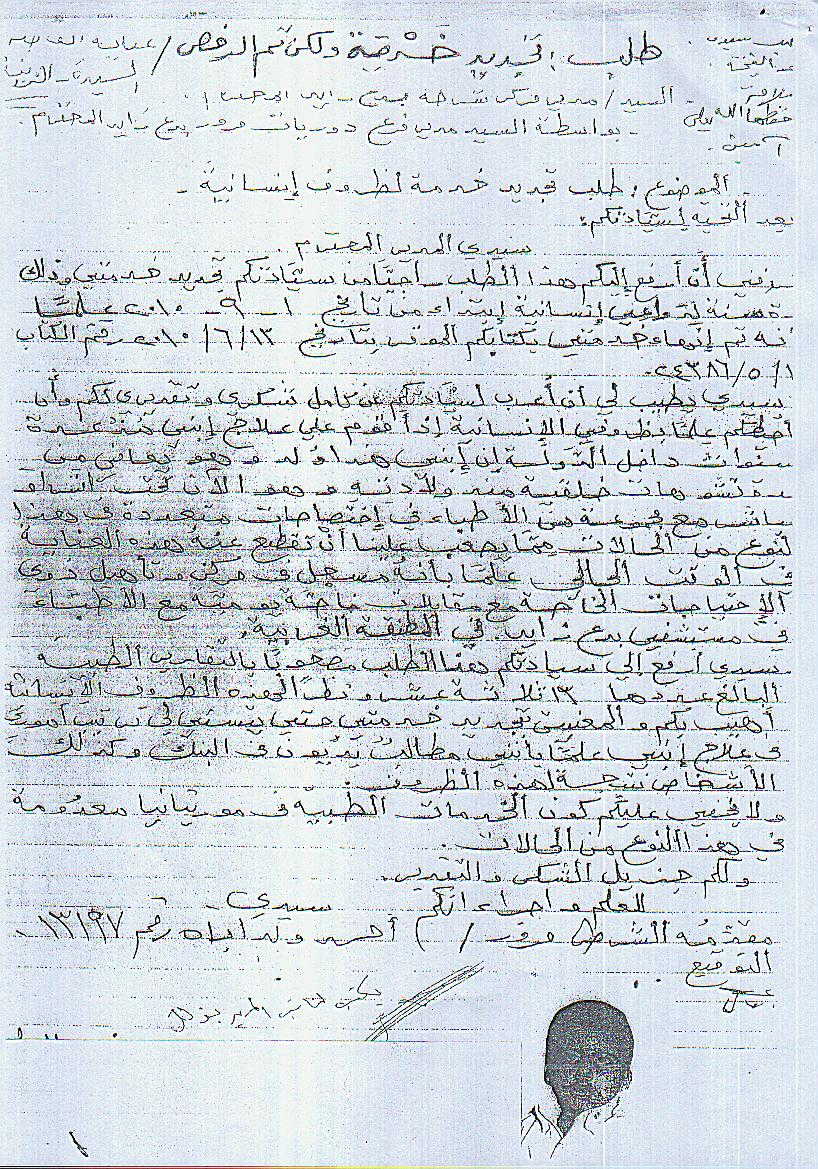 طلب: تجديد خدمة ولكن تم الرفض /
السيد/ مدير مركز شرطة
بواسطة السيد مدير فرع دوريات مرور بدع زايد المحترم.
الموضوع: طلب تجديد خدمة لظروف إنسانية -
بعد التحية لسيادتكم:
سيدي المدير المحترم
أن أرفع إليكم هذا الطلب راجيًا من سيادتكم تجديد خدمتي وذلك
سنة لدواعي إنسانية إبتداء من تاريخ ١-٩-٢٠١٠ علمًا
أنه تم إنهاء خدمتي بكتابكم الموقر بتاريخ ١٣/٦/٢٠١٠ رقم الكتاب
٢٤٣٨٦/٥/١
سيدي يطيب لي أن أعرب لسيادتكم عن كامل شكري وتقديري لكم وأن
أحيطكم علمًا بظروفي الإنسانية إذ أقوم على علاج إبني منذ عدة
سنوات داخل الدولة إن إبني هذا ولد وهو يعاني من
تشوهات خلقية منذ ولادته وهو الآن تحت إشراف
مباشر مع مجموعة من الأطباء في إختصاصات متعددة في هذا
النوع من الحالات مما يصعب علينا أن تقطع عنه هذه العناية
في الوقت الحالي علمًا بأنه مسجل في مركز تأهيل ذوي
الإحتياجات الخاصة مع مقابلات خاصة يومية مع الأطباء
في مستشفى بدع زايد. في المنطقة الغربية.
سيدي أرفع إلى سيادتكم هذا الطلب مصحوبًا بالتقارير الطبية
البالغ عددها ١٣ ثلاثة عشر ونظرًا لهذه الظروف الإنسانية
أهيب بكم والمعنيين تجديد خدمتي حتى يتسنى لي ترتيب أموري
في علاج إبني علمًا بأنني مطالب بديون في البنك وكذلك
الأشخاص نتيجة لهذه الظروف.
ولا يخفى عليكم كون الخدمات الطبية في موريتانيا معدومة
في هذا النوع من الحالات.
ولكم جزيل الشكر والتقدير.
للعلم وإجراءاتكم سيدي.
مقدمه الشرطي مرور / أحمد ولد اباه رقم ١٣١٩٧ -
التوقيع